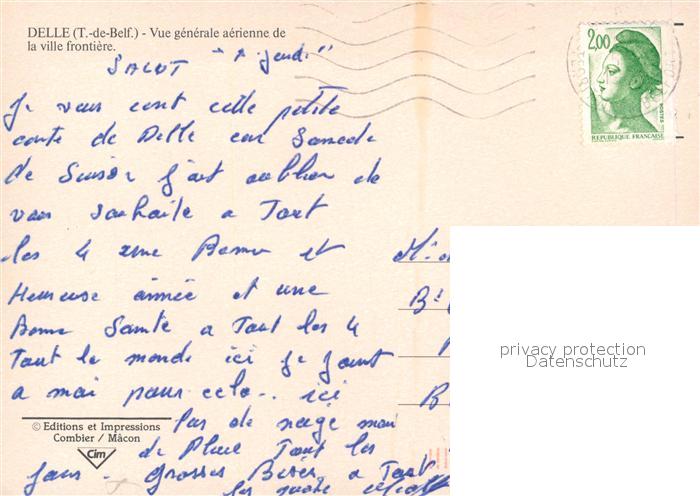 DELLE (T.-de-Belf.) - Vue générale aérienne de
la ville frontière.
SALUT
Je vous cont cette petite
conte de Delle car Samede
de Suisse J'ait oublier de
vous Souhaite a Tout
les 4 une Bonne et
Heureuse année et une
Bonne Sante a Tout les 4
Tout le monde ici se joint
a moi pour celo.. ici
pas de nege mai
de Pluie Tout les
jours. grosses Bises a Tout
les quatre
2,00
POSTES
REPUBLIQUE FRANÇAISE
privacy protection
Datenschutz
© Editions et Impressions
Combier / Mâcon
Cim